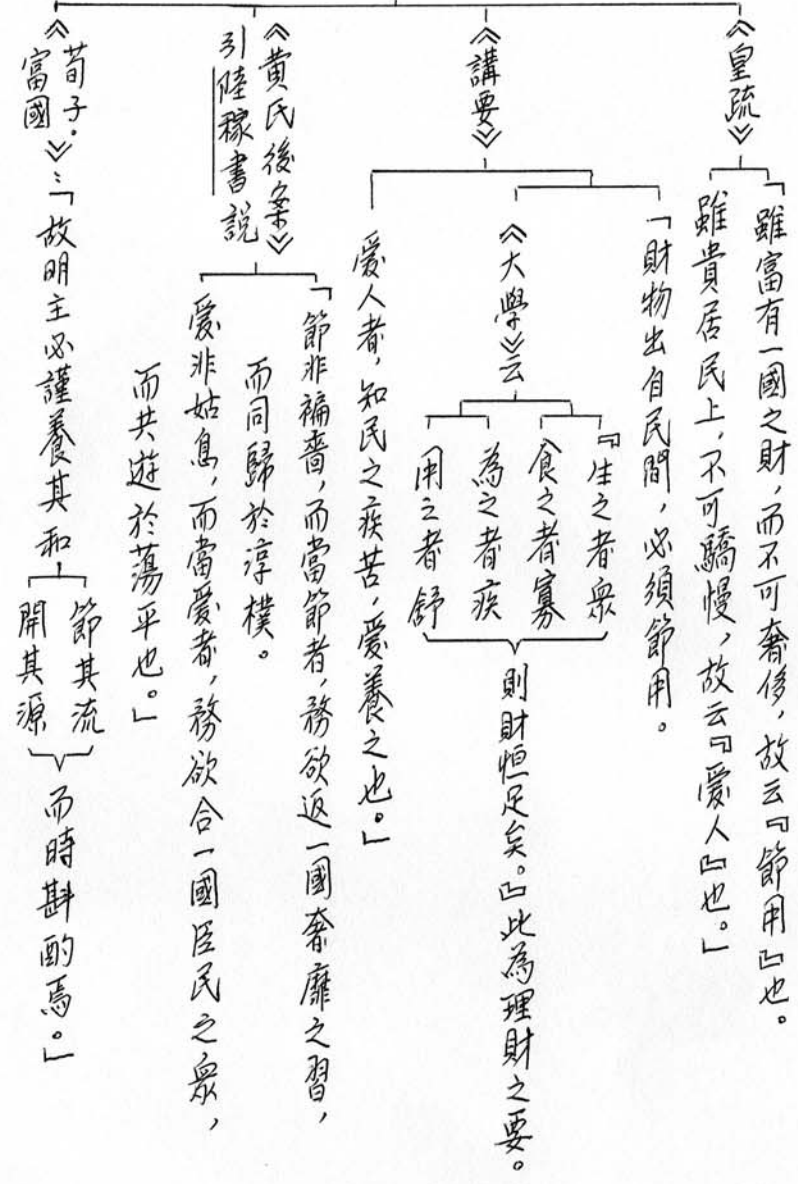 《皇疏》
「雖富有一國之財，而不可奢侈，故云『節用』也。
雖貴居民上，不可驕慢，故云『愛人』也。」
《講要》
「財物出自民間，必須節用。
《大學》云
『生之者衆
食之者寡
為之者疾
用之者舒
則財恒足矣。』此為理財之要。
愛人者，知民之疾苦，愛養之也。」
《黃氏後案》
引陸稼書說
「節非褊嗇，而當節者，務欲返一國奢靡之習，
而同歸於淳樸。
愛非姑息，而當愛者，務欲合一國臣民之衆，
而共遊於蕩平也。」
《荀子。
富國》：「故明主必謹養其和
節其流
開其源
而時斟酌焉。」